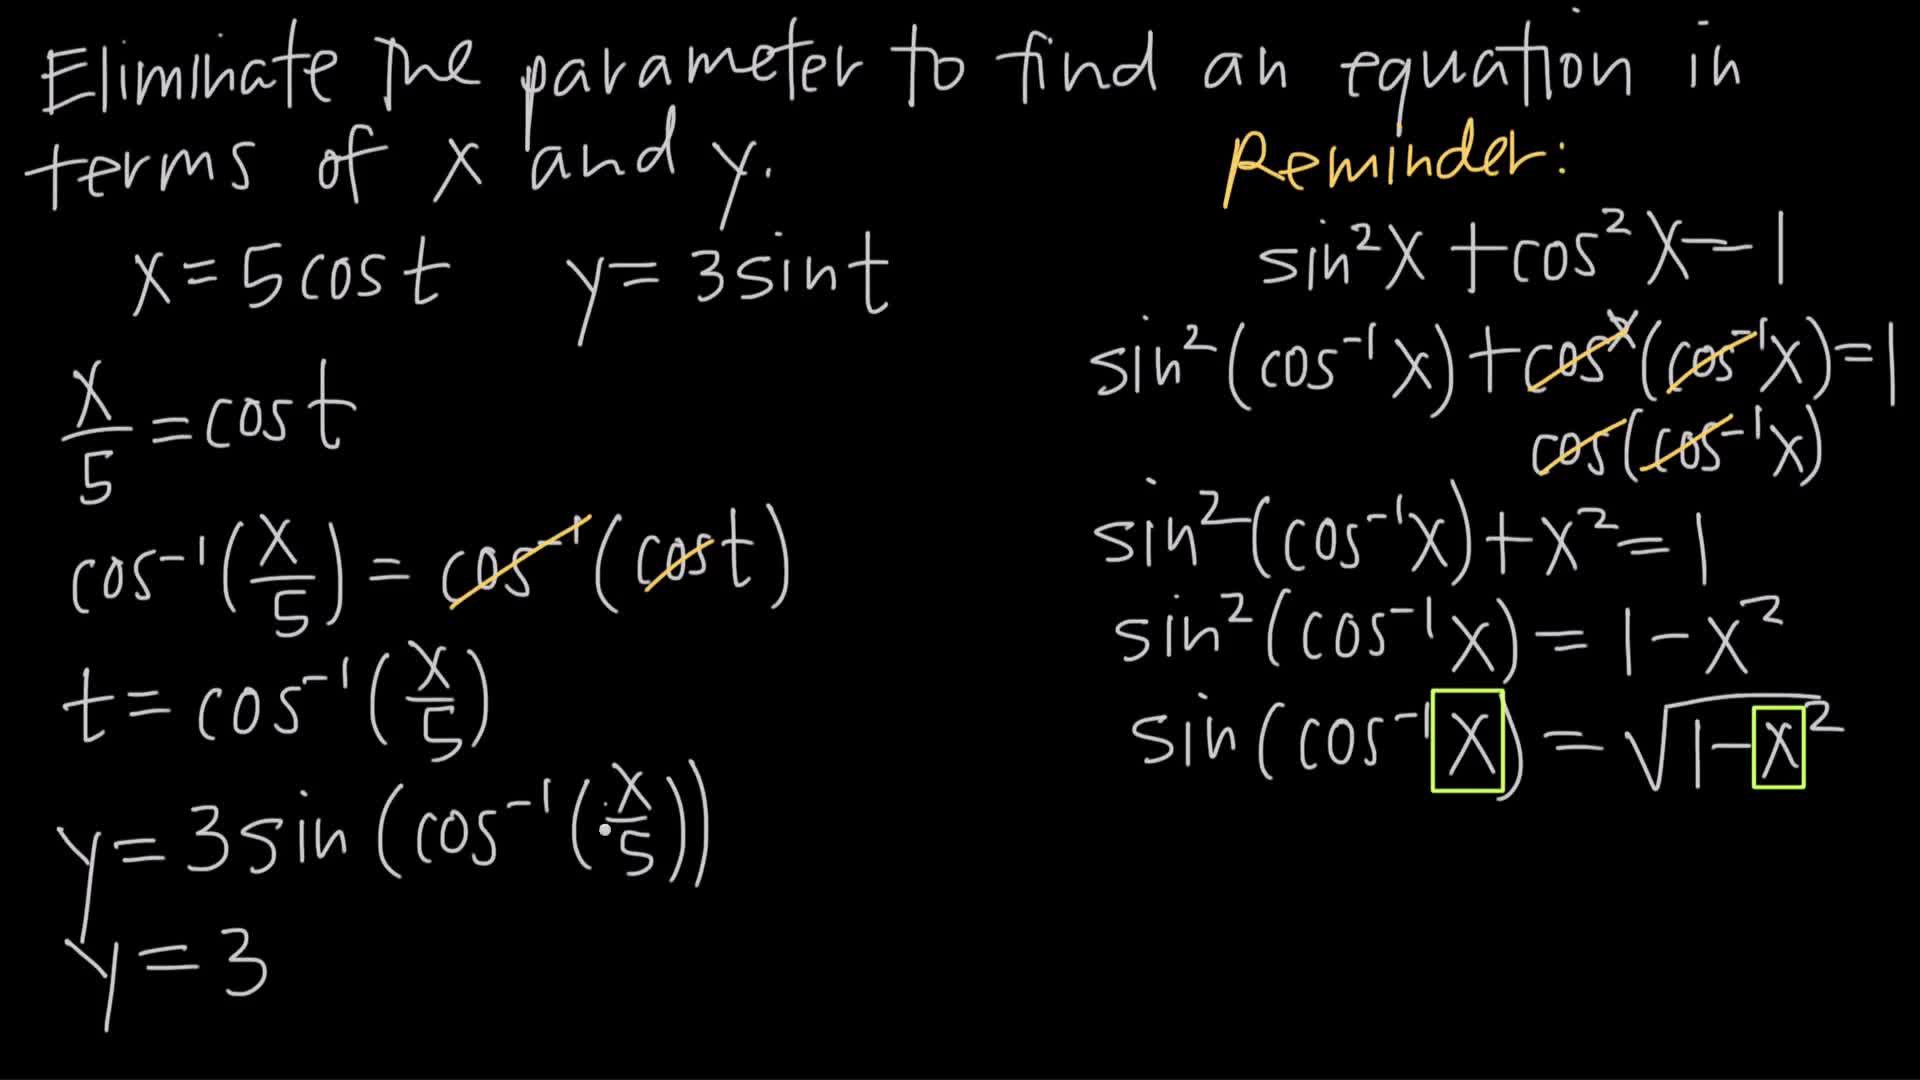 Eliminate the parameter to find an equation in
terms of x and y.
x = 5cost y = 3sint
x/5 = cost
cos⁻¹(x/5) = cos⁻¹(cost)
t = cos⁻¹(x/5)
y = 3sin(cos⁻¹(x/5))
y = 3
Reminder:
sin²x + cos²x = 1
sin²(cos⁻¹x) + cos²(cos⁻¹x) = 1
cos(cos⁻¹x)
sin²(cos⁻¹x) + x² = 1
sin²(cos⁻¹x) = 1 - x²
sin(cos⁻¹x) = √1-x²